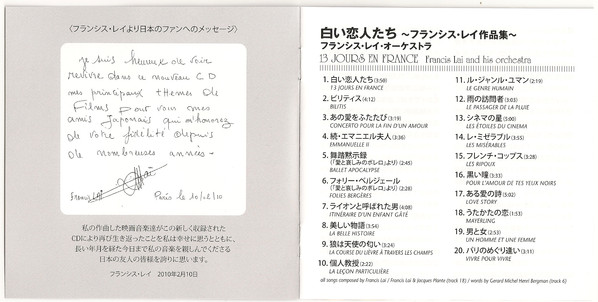 〈フランシス・レイより日本のファンへのメッセージ〉
je suis heureux de voir
revivre dans ce nouveau CD
mes principaux themes de
Films pour vous mes
amis Japonais qui m'honorez
de votre fidélité depuis
de nombreuses années.
Francis Lai
Paris le 10/02/10
私の作曲した映画音楽達がこの新しく収録された
CDにより再び生き返ったことを私は幸せに思うとともに、
長い年月を経た今日まで私の音楽を親しんでくださる
日本の友人の皆様を誇りに思います。
フランシス・レイ 2010年2月10日
白い恋人たち ～フランシス・レイ作品集～
フランシス・レイ・オーケストラ
13 JOURS EN FRANCE Francis Lai and his orchestra
1. 白い恋人たち(3:50)
13 JOURS EN FRANCE
2. ビリティス(4:12)
BILITIS
3. あの愛をふたたび(3:19)
CONCERTO POUR LA FIN D'UN AMOUR
4. 続・エマニエル夫人(3:36)
EMMANUELLE II
5. 舞踏黙示録
(「愛と哀しみのボレロ」より)(2:45)
BALLET APOCALYPSE
6. フォリー・ベルジェール
(「愛と哀しみのボレロ」より)(2:28)
FOLIES BERGÈRES
7. ライオンと呼ばれた男(4:08)
ITINÉRAIRE D'UN ENFANT GÂTÉ
8. 美しい物語(3:54)
LA BELLE HISTOIRE
9. 狼は天使の匂い(3:24)
LA COURSE DU LIÈVRE À TRAVERS LES CHAMPS
10. 個人教授(2:22)
LA LEÇON PARTICULIÈRE
11. ル・ジャンル・ユマン(2:19)
LE GENRE HUMAIN
12. 雨の訪問者(3:03)
LE PASSAGER DE LA PLUIE
13. シネマの星(5:00)
LES ÉTOILES DU CINÉMA
14. レ・ミゼラブル(3:55)
LES MISÉRABLES
15. フレンチ・コップス(3:28)
LES RIPOUX
16. 黒い瞳(2:33)
POUR L'AMOUR DE TES YEUX NOIRS
17. ある愛の詩(5:02)
LOVE STORY
18. うたかたの恋(3:43)
MAYERLING
19. 男と女(2:53)
UN HOMME ET UNE FEMME
20. パリのめぐり逢い(3:11)
VIVRE POUR VIVRE
all songs composed by Francis Lai / Francis Lai & Jacques Plante (track 18) / words by Gerard Michel Henri Bergman (track 6)